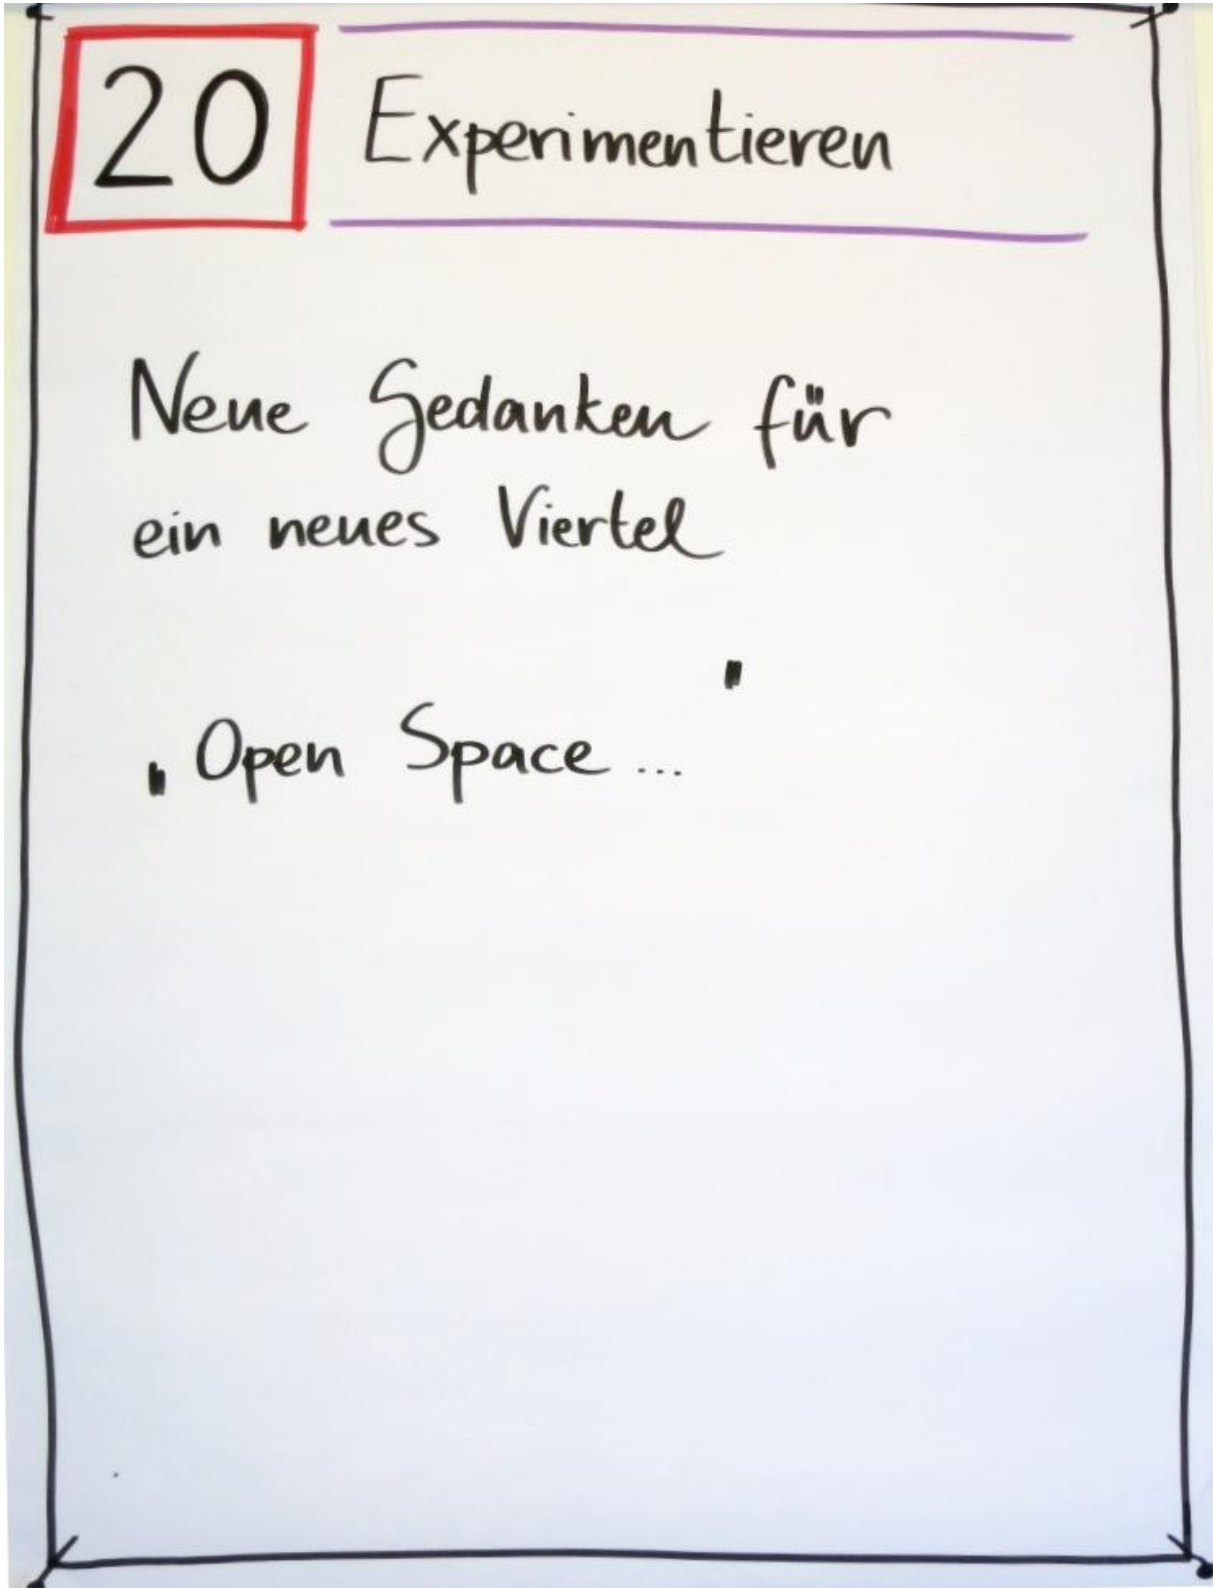 20 Experimentieren
Neue Gedanken für
ein neues Viertel
„Open Space..."